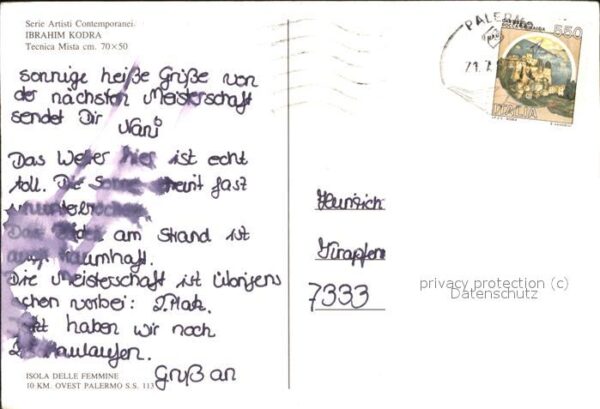 Serie Artisti Contemporanei
IBRAHIM KODRA
Tecnica Mista cm. 70×50
sonnige heiße Grüße von
der nächsten Meisterschaft
sendet Dir
Das Wetter hier ist echt
toll. Die Sonne scheint fast
ununterbrochen.
Das am Strand ist
auch traumhaft.
Die Meisterschaft ist übrigens
schon vorbei: 7. Platz.
haben wir noch
Gruß an
ISOLA DELLE FEMMINE
10 KM. OVEST PALERMO S.S. 113
PALERMO
550
ITALIA
Heinrich
7333
privacy protection (c)
Datenschutz